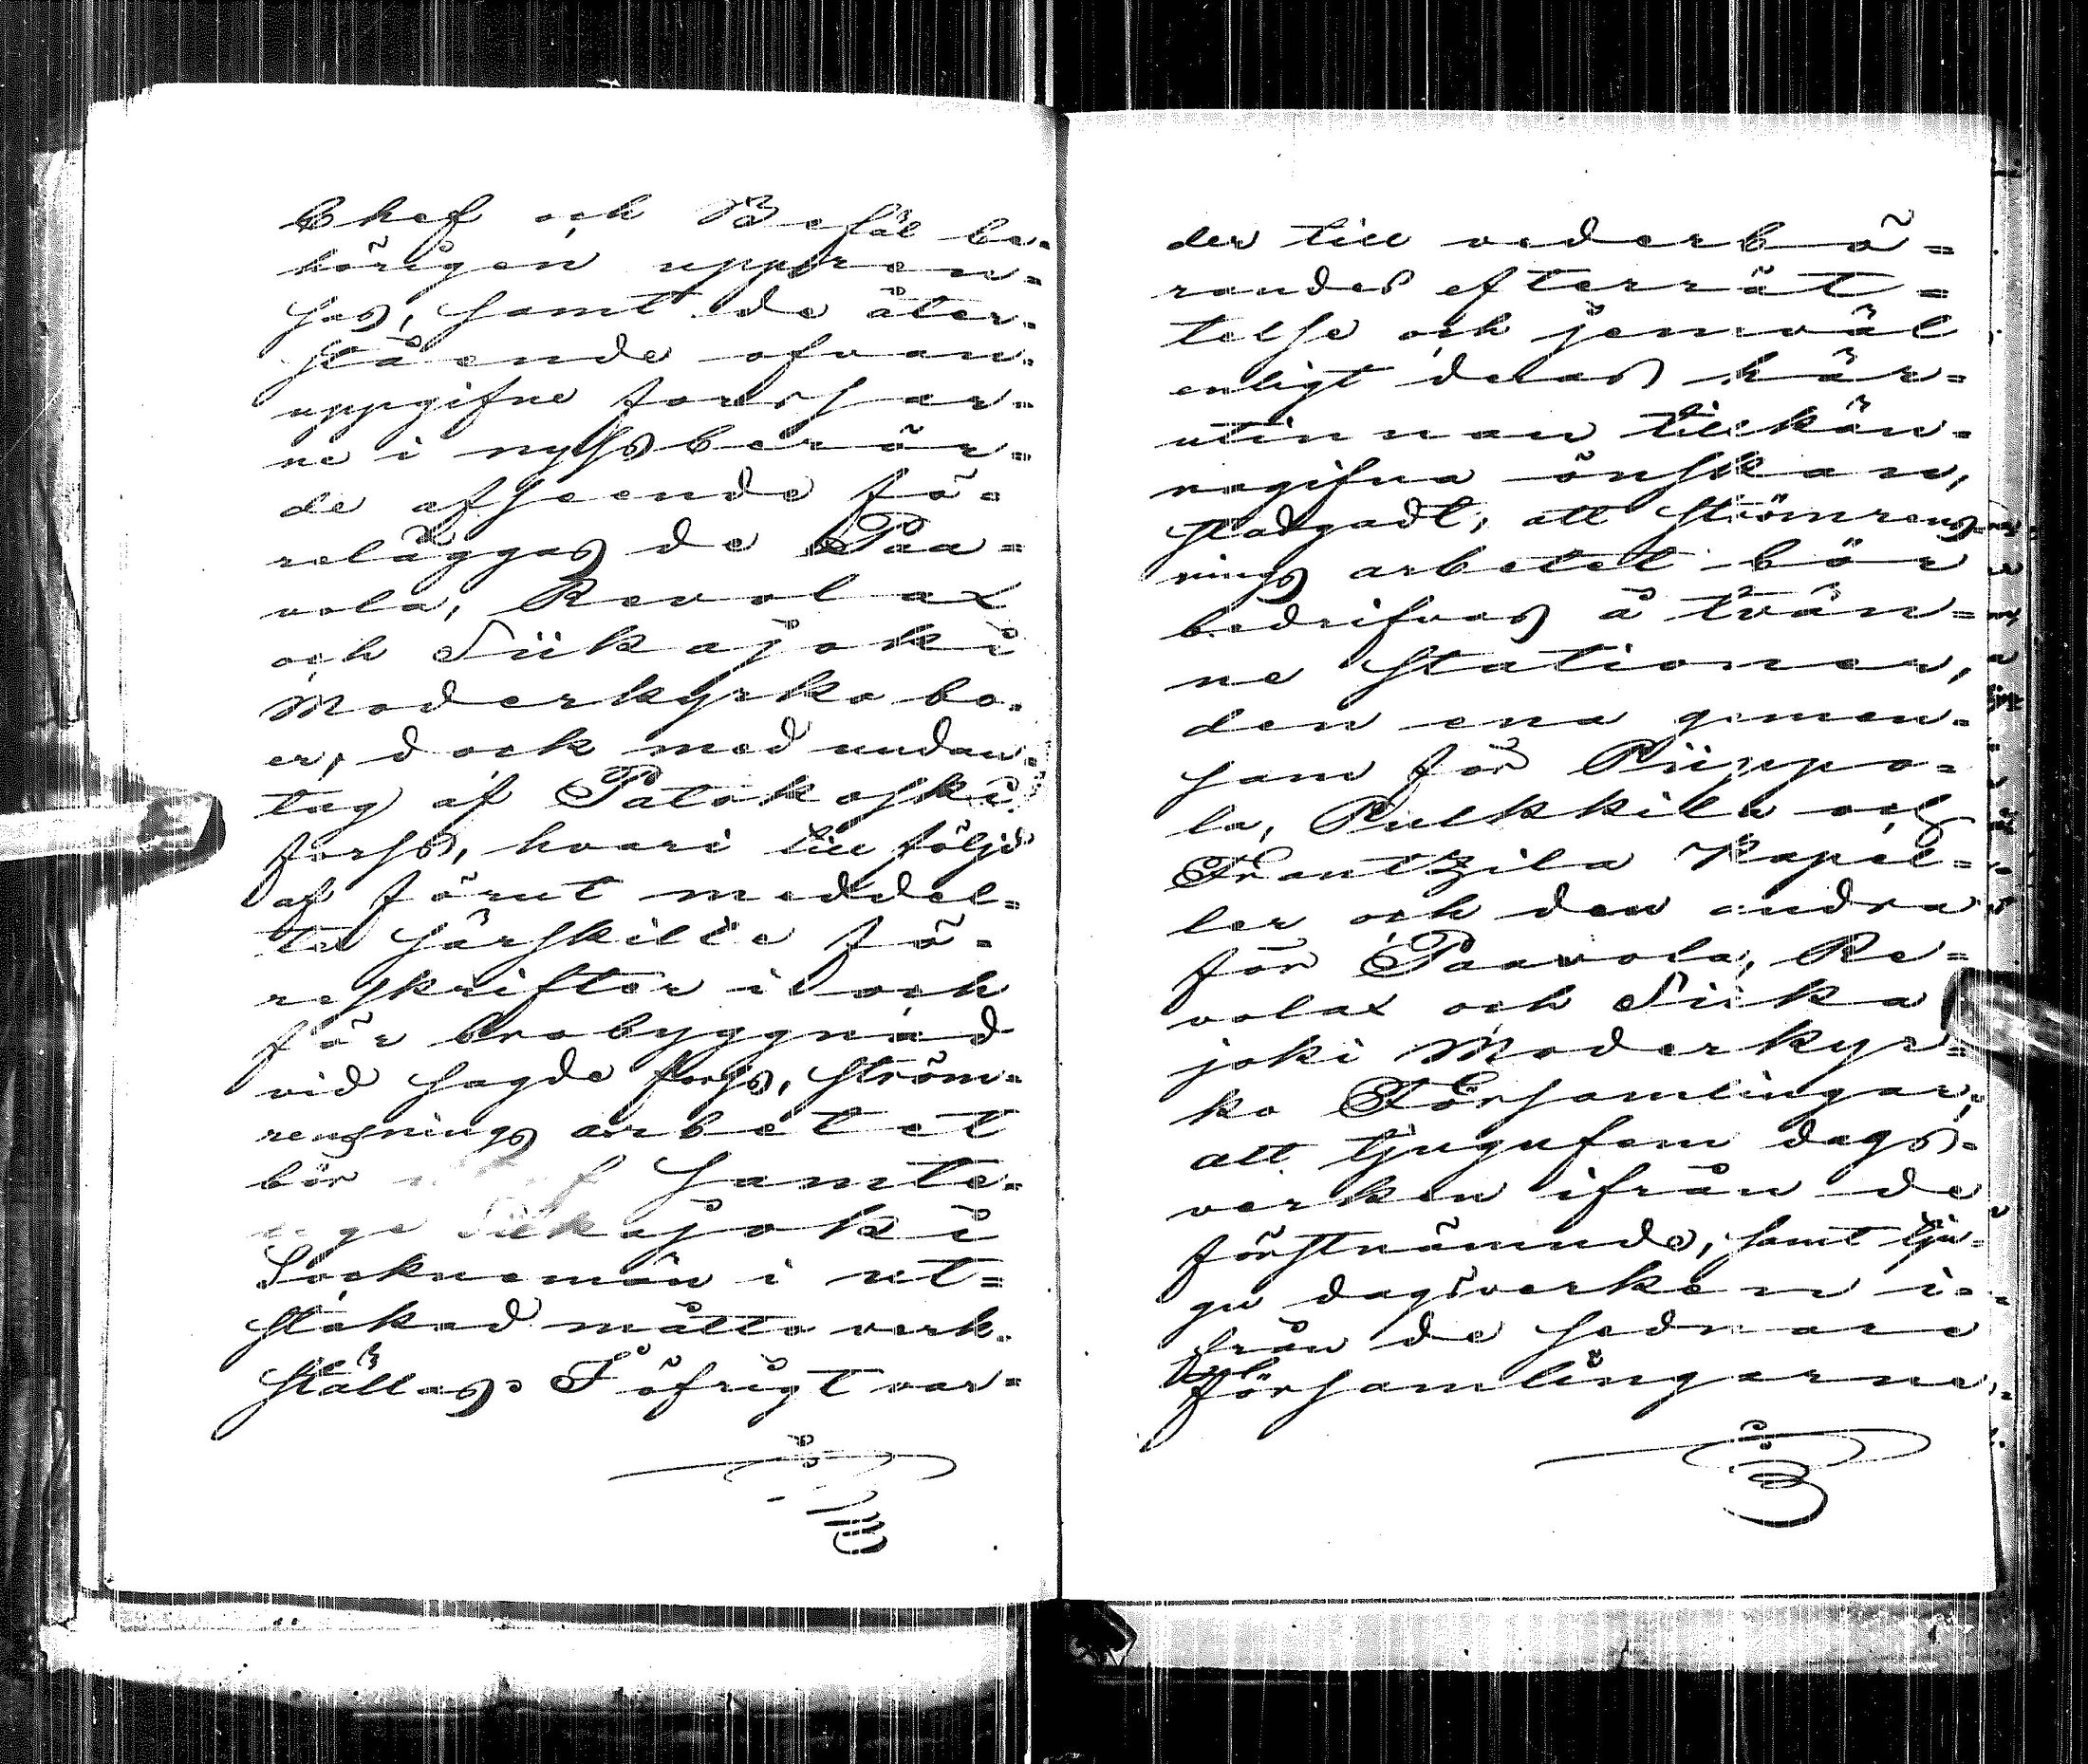 Chef och Befäl be=
hörigen uppren=
sas, samt de åter=
stående ofvan=
uppgifne forssar=
ne i nyssberör=
de afseende fö=
reläggas de Paa=
vola, Revolax
och Siikajoki
Moderkyrko bo=
er, dock med undan=
tag af Patokoski
forss, hvari till följd
af förut meddel=
te särskilde fö=
reskrifter i och
för brobyggnad
vid sagde forss, ström=
rensnings arbetet
bör af samte=
lige Siikajoki
Socknemän i ut=
stakad måtto verk=
ställas. I öfrigt var=
der till vederbö=
randes efterrät=
telse och jemväl
enligt deras här=
utinnan tillkän=
nagifna önskan,
stadgadt, att strömrens=
nings arbetet bör
bedrifvas å tvän=
ne stationer,
den ena gemen=
sam för Piippo=
la, Pulkkila och
Frantzila Kapel=
ler och den andra
för Paavola, Re=
volax och Siika
joki Moderkyr=
ko Församlingar,
att tjugufem dags=
verken ifrån de
förstnämnde, samt tju=
gu dagsverken i=
från de sednare
församlingarne